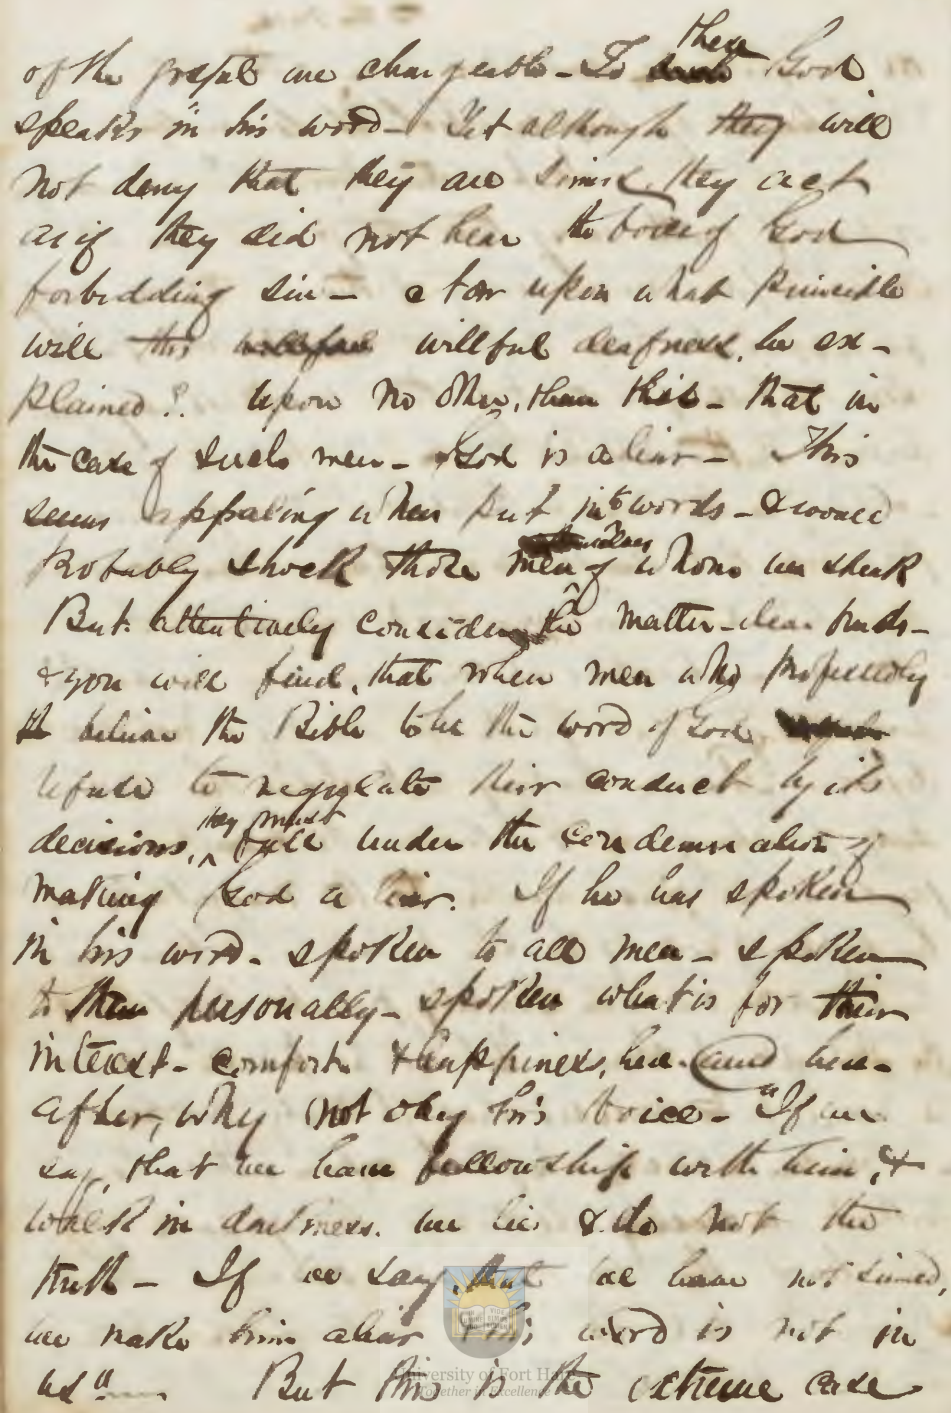 of the gospel are chargeable - To these God
speaks in his word - Yet although they will
not deny that they are sinners, they act
as if they did not hear the voice of God
forbidding sin - & for upon what principle
will this willful willful deafness, be ex-
plained?. Upon no other, than this - that in
the case of such men - God is a liar - This
seems appaling when put into words - & would
Probably shock those men of whom we speak
But attentively consider the matter - dear friends -
& you will find, that when men who professedly
believe the Bible to be the word of God
refuse to regulate their conduct by its
decisions, they must fall under the condemnation of
making God a liar. If he has spoken
in his word - spoken to all men - spoken
to them personally - spoken what is for their
interest - comfort & happiness, here and here-
after, why not obey his voice - "If we
say, that we have fellowship with him, &
walk in darkness. we lie & do not the
truth - If we say, that we have not sinned,
we make him a liar & his word is not in
us" But this is the extreme case
University of Fort Hare
Together in Excellence